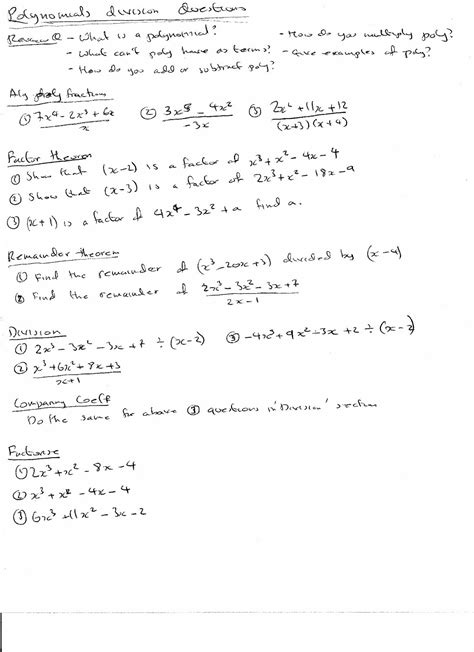 Polynomials division Questions
Review Q - What is a polynomial? - How do you multiply poly?
- What can't poly have as terms? - Give examples of poly?
- How do you add or subtract poly?
Alg fraction
① 7x⁴ - 2x³ + 6x / x ② 3x⁵ - 4x² / -3x ③ 2x² + 11x + 12 / (x+3)(x+4)
Factor theorem
① Show that (x-2) is a factor of x³ + x² - 4x - 4
② Show that (x-3) is a factor of 2x³ + x² - 18x - 9
③ (x+1) is a factor of 4x⁴ - 3x² + a find a.
Remainder theorem
① Find the remainder of (x³ - 20x + 3) divided by (x-4)
② Find the remainder of 2x³ - 3x² - 3x + 7 / 2x - 1
Division
① 2x³ - 3x² - 3x + 7 ÷ (x-2) ③ -4x³ + 9x² - 3x + 2 ÷ (x-2)
② x³ + 6x² + 8x + 3 / x+1
Comparing Coeff
Do the same for above ③ questions in 'Division' section
Factorise
① 2x³ + x² - 8x - 4
② x³ + x² - 4x - 4
③ 6x³ + 11x² - 3x - 2